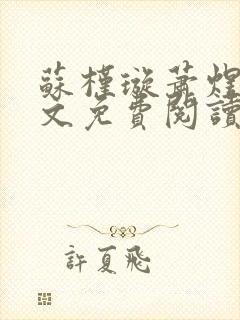 蘇槿璇蕭煌
文免費閱讀
許夏飛